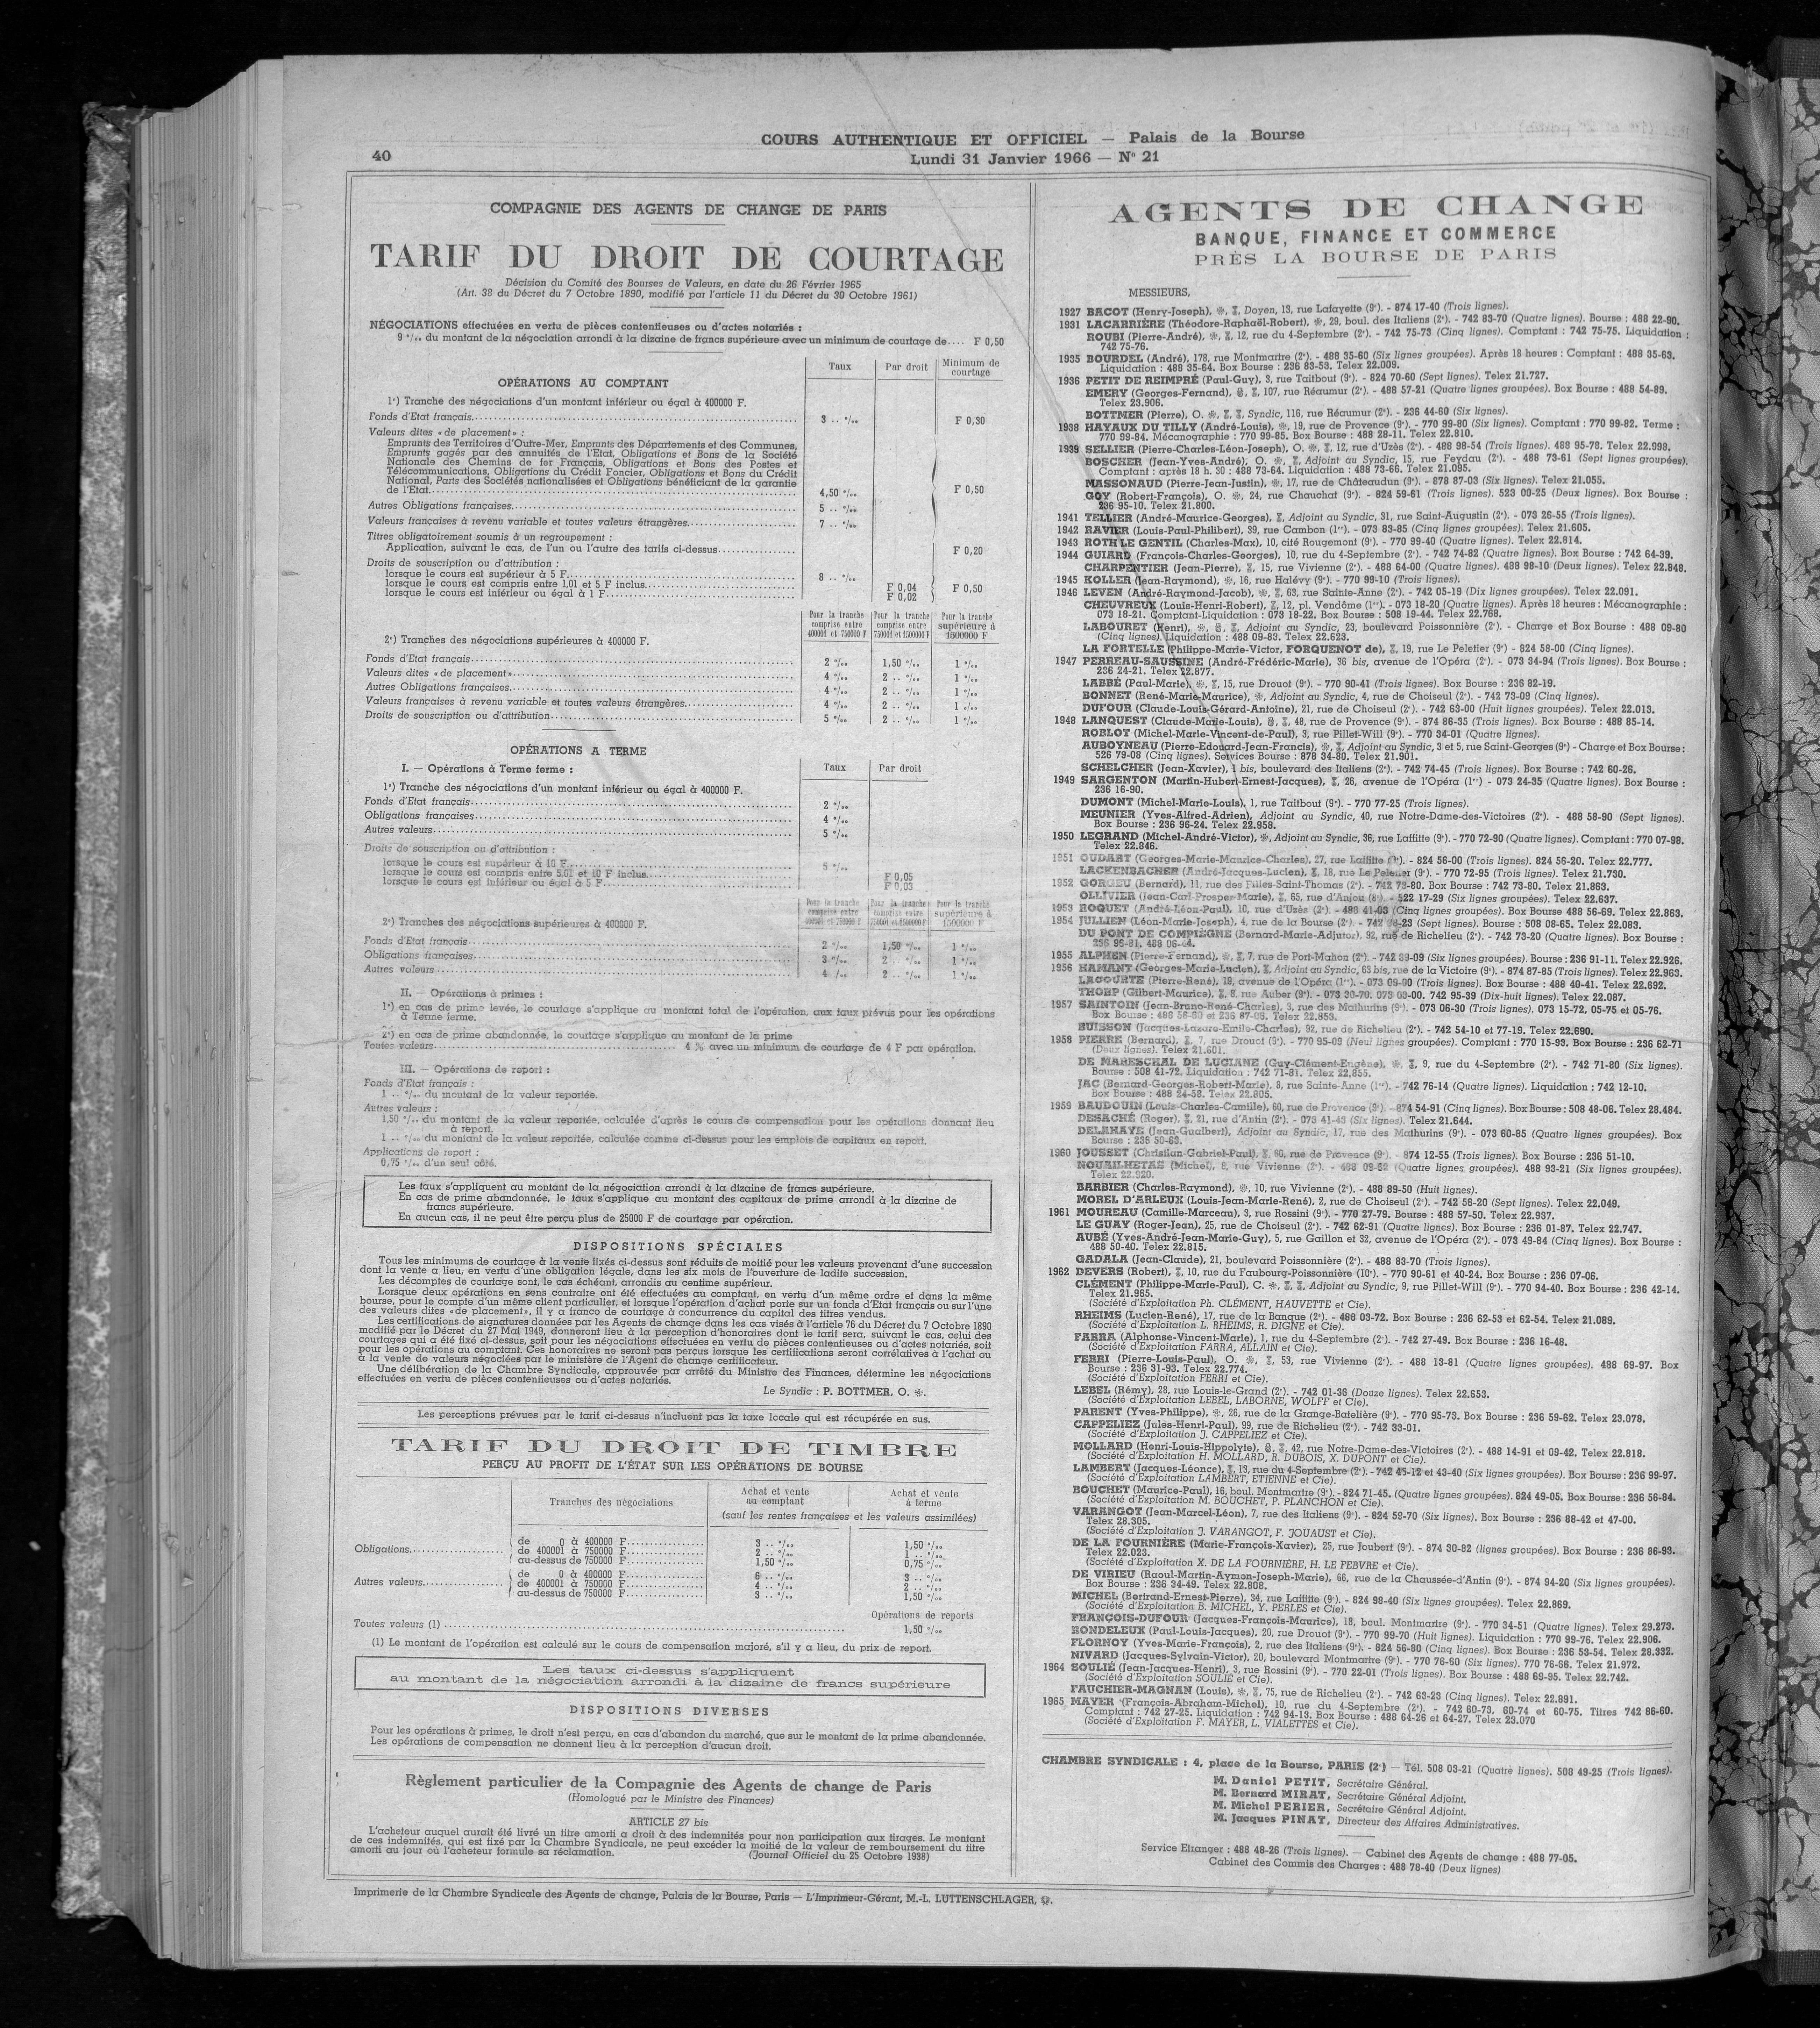 40
COURS AUTHENTIQUE ET OFFICIEL — Palais de la Bourse
Lundi 31 Janvier 1966 — N° 21
COMPAGNIE DES AGENTS DE CHANGE DE PARIS
TARIF DU DROIT DE COURTAGE
Décision du Comité des Bourses de Valeurs, en date du 26 Février 1965
(Art. 38 du Décret du 7 Octobre 1890, modifié par l'article 11 du Décret du 30 Octobre 1961)
NÉGOCIATIONS effectuées en vertu de pièces contentieuses ou d'actes notariés :
9 °/oo du montant de la négociation arrondi à la dizaine de francs supérieure avec un minimum de courtage de.... F 0,50
Taux Par droit Minimum de courtage
OPÉRATIONS AU COMPTANT
1°) Tranche des négociations d'un montant inférieur ou égal à 400000 F.
Fonds d'Etat français 3 .. °/oo F 0,30
Valeurs dites « de placement » :
Emprunts des Territoires d'Outre-Mer, Emprunts des Départements et des Communes,
Emprunts gagés par des annuités de l'Etat, Obligations et Bons de la Société
Nationale des Chemins de fer Français, Obligations et Bons des Postes et
Télécommunications, Obligations du Crédit Foncier, Obligations et Bons du Crédit
National, Parts des Sociétés nationalisées et Obligations bénéficiant de la garantie
de l'Etat 4,50 °/oo F 0,50
Autres Obligations françaises 5 .. °/oo
Valeurs françaises à revenu variable et toutes valeurs étrangères 7 .. °/oo
Titres obligatoirement soumis à un regroupement :
Application, suivant le cas, de l'un ou l'autre des tarifs ci-dessus F 0,20
Droits de souscription ou d'attribution :
lorsque le cours est supérieur à 5 F 8 .. °/oo
lorsque le cours est compris entre 1,01 et 5 F inclus F 0,04 F 0,50
lorsque le cours est inférieur ou égal à 1 F F 0,02
Pour la tranche comprise entre 400001 et 750000 F Pour la tranche comprise entre 750001 et 1500000 F Pour la tranche supérieure à 1500000 F
2°) Tranches des négociations supérieures à 400000 F.
Fonds d'Etat français 2 °/oo 1,50 °/oo 1 °/oo
Valeurs dites « de placement » 4 °/oo 2 .. °/oo 1 °/oo
Autres Obligations françaises 4 °/oo 2 .. °/oo 1 °/oo
Valeurs françaises à revenu variable et toutes valeurs étrangères 4 °/oo 2 .. °/oo 1 °/oo
Droits de souscription ou d'attribution 5 °/oo 2 .. °/oo 1 °/oo
OPÉRATIONS A TERME
I. — Opérations à Terme ferme : Taux Par droit
1°) Tranche des négociations d'un montant inférieur ou égal à 400000 F.
Fonds d'Etat français 2 °/oo
Obligations françaises 4 °/oo
Autres valeurs 5 °/oo
Droits de souscription ou d'attribution :
lorsque le cours est supérieur à 10 F 5 °/oo
lorsque le cours est compris entre 5,01 et 10 F inclus F 0,05
lorsque le cours est inférieur ou égal à 5 F F 0,03
Pour la tranche comprise entre 400001 et 750000 F Pour la tranche comprise entre 750001 et 1500000 F Pour la tranche supérieure à 1500000 F
2°) Tranches des négociations supérieures à 400000 F.
Fonds d'Etat français 2 °/oo 1,50 °/oo 1 °/oo
Obligations françaises 3 °/oo 2 .. °/oo 1 °/oo
Autres valeurs 4 °/oo 2 .. °/oo 1 °/oo
II. — Opérations à primes :
1°) en cas de prime levée, le courtage s'applique au montant total de l'opération, aux taux prévus pour les opérations
à Terme ferme.
2°) en cas de prime abandonnée, le courtage s'applique au montant de la prime
Toutes valeurs 4 % avec un minimum de courtage de 4 F par opération.
III. — Opérations de report :
Fonds d'Etat français :
1 .. °/oo du montant de la valeur reportée.
Autres valeurs :
1,50 °/oo du montant de la valeur reportée, calculée d'après le cours de compensation pour les opérations donnant lieu
à report.
1 .. °/oo du montant de la valeur reportée, calculée comme ci-dessus pour les emplois de capitaux en report.
Applications de report :
0,75 °/oo d'un seul côté.
Les taux s'appliquent au montant de la négociation arrondi à la dizaine de francs supérieure.
En cas de prime abandonnée, le taux s'applique au montant des capitaux de prime arrondi à la dizaine de
francs supérieure.
En aucun cas, il ne peut être perçu plus de 25000 F de courtage par opération.
DISPOSITIONS SPÉCIALES
Tous les minimums de courtage à la vente fixés ci-dessus sont réduits de moitié pour les valeurs provenant d'une succession
dont la vente a lieu, en vertu d'une obligation légale, dans les six mois de l'ouverture de ladite succession.
Les décomptes de courtage sont, le cas échéant, arrondis au centime supérieur.
Lorsque deux opérations en sens contraire ont été effectuées au comptant, en vertu d'un même ordre et dans la même
bourse, pour le compte d'un même client particulier, et lorsque l'opération d'achat porte sur un fonds d'Etat français ou sur l'une
des valeurs dites « de placement », il y a franco de courtage à concurrence du capital des titres vendus.
Les certifications de signatures données par les Agents de change dans les cas visés à l'article 76 du Décret du 7 Octobre 1890
modifié par le Décret du 27 Mai 1949, donneront lieu à la perception d'honoraires dont le tarif sera, suivant le cas, celui des
courtages qui a été fixé ci-dessus, soit pour les négociations effectuées en vertu de pièces contentieuses ou d'actes notariés, soit
pour les opérations au comptant. Ces honoraires ne seront pas perçus lorsque les certifications seront corrélatives à l'achat ou
à la vente de valeurs négociées par le ministère de l'Agent de change certificateur.
Une délibération de la Chambre Syndicale, approuvée par arrêté du Ministre des Finances, détermine les négociations
effectuées en vertu de pièces contentieuses ou d'actes notariés.
Le Syndic : P. BOTTMER, O. ❀.
Les perceptions prévues par le tarif ci-dessus n'incluent pas la taxe locale qui est récupérée en sus.
TARIF DU DROIT DE TIMBRE
PERÇU AU PROFIT DE L'ÉTAT SUR LES OPÉRATIONS DE BOURSE
Tranches des négociations Achat et vente au comptant Achat et vente à terme
(sauf les rentes françaises et les valeurs assimilées)
Obligations
de 0 à 400000 F 3 .. °/oo 1,50 °/oo
de 400001 à 750000 F 2 .. °/oo 1 .. °/oo
au-dessus de 750000 F 1,50 °/oo 0,75 °/oo
Autres valeurs
de 0 à 400000 F 6 .. °/oo 3 .. °/oo
de 400001 à 750000 F 4 .. °/oo 2 .. °/oo
au-dessus de 750000 F 3 .. °/oo 1,50 °/oo
Opérations de reports
Toutes valeurs (1) 1,50 °/oo
(1) Le montant de l'opération est calculé sur le cours de compensation majoré, s'il y a lieu, du prix de report.
Les taux ci-dessus s'appliquent
au montant de la négociation arrondi à la dizaine de francs supérieure
DISPOSITIONS DIVERSES
Pour les opérations à primes, le droit n'est perçu, en cas d'abandon du marché, que sur le montant de la prime abandonnée.
Les opérations de compensation ne donnent lieu à la perception d'aucun droit.
Règlement particulier de la Compagnie des Agents de change de Paris
(Homologué par le Ministre des Finances)
ARTICLE 27 bis
L'acheteur auquel aurait été livré un titre amorti a droit à des indemnités pour non participation aux tirages. Le montant
de ces indemnités, qui est fixé par la Chambre Syndicale, ne peut excéder la moitié de la valeur de remboursement du titre
amorti au jour où l'acheteur formule sa réclamation. (Journal Officiel du 25 Octobre 1938)
AGENTS DE CHANGE
BANQUE, FINANCE ET COMMERCE
PRÈS LA BOURSE DE PARIS
MESSIEURS,
1927 BACOT (Henry-Joseph), Doyen, 13, rue Lafayette (9e). - 874 17-40 (Trois lignes).
1931 LACARRIÈRE (Théodore-Raphaël-Robert), 29, boul. des Italiens (2e). - 742 83-70 (Quatre lignes). Bourse : 488 22-90.
ROUBI (Pierre-André), 12, rue du 4-Septembre (2e). - 742 75-73 (Cinq lignes). Comptant : 742 75-75. Liquidation :
742 75-76.
1935 BOURDEL (André), 178, rue Montmartre (2e). - 488 35-60 (Six lignes groupées). Après 18 heures : Comptant : 488 35-63.
Liquidation : 488 35-64. Box Bourse : 236 83-53. Telex 22.009.
1936 PETIT DE REIMPRÉ (Paul-Guy), 3, rue Taitbout (9e). - 824 70-60 (Sept lignes). Telex 21.727.
EMERY (Georges-Fernand), 107, rue Réaumur (2e). - 488 57-21 (Quatre lignes groupées). Box Bourse : 488 54-89.
Telex 23.906.
BOTTMER (Pierre), O. Syndic, 116, rue Réaumur (2e). - 236 44-60 (Six lignes).
1938 HAYAUX DU TILLY (André-Louis), 19, rue de Provence (9e). - 770 99-80 (Six lignes). Comptant : 770 99-82. Terme :
770 99-84. Mécanographie : 770 99-85. Box Bourse : 488 28-11. Telex 22.810.
1939 SELLIER (Pierre-Charles-Léon-Joseph), O. 12, rue d'Uzès (2e). - 488 98-54 (Trois lignes). 488 95-78. Telex 22.998.
BOSCHER (Jean-Yves-André), O. Adjoint au Syndic, 15, rue Feydau (2e). - 488 73-61 (Sept lignes groupées).
Comptant : après 18 h. 30 : 488 73-64. Liquidation : 488 73-66. Telex 21.095.
MASSONAUD (Pierre-Jean-Justin), 17, rue de Châteaudun (9e). - 878 87-03 (Six lignes). Telex 21.055.
GOY (Robert-François), O. 24, rue Chauchat (9e). - 824 59-61 (Trois lignes). 523 00-25 (Deux lignes). Box Bourse :
236 95-10. Telex 21.800.
1941 TELLIER (André-Maurice-Georges), Adjoint au Syndic, 31, rue Saint-Augustin (2e). - 073 26-55 (Trois lignes).
1942 RAVIER (Louis-Paul-Philibert), 39, rue Cambon (1er). - 073 83-85 (Cinq lignes groupées). Telex 21.605.
1943 ROTH LE GENTIL (Charles-Max), 10, cité Rougemont (9e). - 770 99-40 (Quatre lignes). Telex 22.814.
1944 GUIARD (François-Charles-Georges), 10, rue du 4-Septembre (2e). - 742 74-82 (Quatre lignes). Box Bourse : 742 64-39.
CHARPENTIER (Jean-Pierre), 15, rue Vivienne (2e). - 488 64-00 (Quatre lignes). 488 98-10 (Deux lignes). Telex 22.848.
1945 KOLLER (Jean-Raymond), 16, rue Halévy (9e). - 770 99-10 (Trois lignes).
1946 LEVEN (André-Raymond-Jacob), 63, rue Sainte-Anne (2e). - 742 05-19 (Dix lignes groupées). Telex 22.091.
CHEUVREUX (Louis-Henri-Robert), 12, pl. Vendôme (1er). - 073 18-20 (Quatre lignes). Après 18 heures : Mécanographie :
073 18-21. Comptant-Liquidation : 073 18-22. Box Bourse : 508 19-44. Telex 22.768.
LABOURET (Henri), Adjoint au Syndic, 23, boulevard Poissonnière (2e). - Charge et Box Bourse : 488 09-80
(Cinq lignes). Liquidation : 488 09-83. Telex 22.623.
LA FORTELLE (Philippe-Marie-Victor, FORQUENOT de), 19, rue Le Peletier (9e) - 824 58-00 (Cinq lignes).
1947 PERREAU-SAUSSINE (André-Frédéric-Marie), 36 bis, avenue de l'Opéra (2e). - 073 34-94 (Trois lignes). Box Bourse :
236 24-21. Telex 22.877.
LABBÉ (Paul-Marie), 15, rue Drouot (9e). - 770 90-41 (Trois lignes). Box Bourse : 236 82-19.
BONNET (René-Marie-Maurice), Adjoint au Syndic, 4, rue de Choiseul (2e). - 742 73-09 (Cinq lignes).
DUFOUR (Claude-Louis-Gérard-Antoine), 21, rue de Choiseul (2e). - 742 63-00 (Huit lignes groupées). Telex 22.013.
1948 LANQUEST (Claude-Marie-Louis), 48, rue de Provence (9e). - 874 86-35 (Trois lignes). Box Bourse : 488 85-14.
ROBLOT (Michel-Marie-Vincent-de-Paul), 3, rue Pillet-Will (9e). - 770 34-01 (Quatre lignes).
AUBOYNEAU (Pierre-Edouard-Jean-Francis), Adjoint au Syndic, 3 et 5, rue Saint-Georges (9e) - Charge et Box Bourse :
526 79-08 (Cinq lignes). Services Bourse : 878 34-80. Telex 21.901.
SCHELCHER (Jean-Xavier), 1 bis, boulevard des Italiens (2e). - 742 74-45 (Trois lignes). Box Bourse : 742 60-26.
1949 SARGENTON (Martin-Hubert-Ernest-Jacques), 26, avenue de l'Opéra (1er) - 073 24-35 (Quatre lignes). Box Bourse :
236 16-90.
DUMONT (Michel-Marie-Louis), 1, rue Taitbout (9e). - 770 77-25 (Trois lignes).
MEUNIER (Yves-Alfred-Adrien), Adjoint au Syndic, 40, rue Notre-Dame-des-Victoires (2e). - 488 58-90 (Sept lignes).
Box Bourse : 236 96-24. Telex 22.958.
1950 LEGRAND (Michel-André-Victor), Adjoint au Syndic, 36, rue Laffitte (9e). - 770 72-90 (Quatre lignes). Comptant : 770 07-98.
Telex 22.846.
1951 OUDART (Georges-Marie-Maurice-Charles), 27, rue Laffitte (9e). - 824 56-00 (Trois lignes). 824 56-20. Telex 22.777.
LACKENBACHER (André-Jacques-Lucien), 18, rue Le Peletier (9e) - 770 72-95 (Trois lignes). Telex 21.730.
1952 GORGEU (Bernard), 11, rue des Filles-Saint-Thomas (2e). - 742 73-80. Box Bourse : 742 73-80. Telex 21.863.
OLLIVIER (Jean-Carl-Prosper-Marie), 65, rue d'Anjou (8e). - 522 17-29 (Six lignes groupées). Telex 22.637.
1953 ROQUET (André-Léon-Paul), 10, rue d'Uzès (2e). - 488 41-03 (Cinq lignes groupées). Box Bourse 488 56-69. Telex 22.863.
1954 JULLIEN (Léon-Marie-Joseph), 4, rue de la Bourse (2e). - 742 -23 (Sept lignes). Bourse : 508 08-65. Telex 22.083.
DU PONT DE COMPIÈGNE (Bernard-Marie-Adjutor), 92, rue de Richelieu (2e). - 742 73-20 (Quatre lignes). Box Bourse :
236 96-81. 488 06-44.
1955 ALPHEN (Pierre-Fernand), 7, rue de Port-Mahon (2e). - 742 39-09 (Six lignes groupées). Bourse : 236 91-11. Telex 22.926.
1956 HAMANT (Georges-Marie-Lucien), Adjoint au Syndic, 63 bis, rue de la Victoire (9e). - 874 87-85 (Trois lignes). Telex 22.963.
LACOURTE (Pierre-René), 19, avenue de l'Opéra (1er). - 073 09-00 (Trois lignes). Box Bourse : 488 40-41. Telex 22.692.
THORP (Gilbert-Maurice), 8, rue Auber (9e). - 073 30-70. 073 03-00. 742 95-39 (Dix-huit lignes). Telex 22.087.
1957 SAINTOIN (Jean-Bruno-René-Charles), 3, rue des Mathurins (9e). - 073 06-30 (Trois lignes). 073 15-72, 05-75 et 05-76.
Box Bourse : 488 56-80 et 236 87-08. Telex 22.853.
BUISSON (Jacques-Lazare-Emile-Charles), 92, rue de Richelieu (2e). - 742 54-10 et 77-19. Telex 22.690.
1958 PIERRE (Bernard), 7, rue Drouot (9e). - 770 95-09 (Neuf lignes groupées). Comptant : 770 15-93. Box Bourse : 236 62-71
(Deux lignes). Telex 21.601.
DE MARESCHAL DE LUCIANE (Guy-Clément-Eugène), 9, rue du 4-Septembre (2e). - 742 71-80 (Six lignes).
Bourse : 508 41-72. Liquidation : 742 71-81. Telex 22.855.
JAC (Bernard-Georges-Robert-Marie), 8, rue Sainte-Anne (1er). - 742 76-14 (Quatre lignes). Liquidation : 742 12-10.
Box Bourse : 488 24-58. Telex 22.805.
1959 BAUDOUIN (Louis-Charles-Camille), 60, rue de Provence (9e). - 874 54-91 (Cinq lignes). Box Bourse : 508 48-06. Telex 28.484.
DESACHÉ (Roger), 21, rue d'Antin (2e). - 073 41-43 (Six lignes). Telex 21.644.
DELAHAYE (Jean-Gualbert), Adjoint au Syndic, 17, rue des Mathurins (9e). - 073 60-85 (Quatre lignes groupées). Box
Bourse : 235 50-63.
1960 JOUSSET (Christian-Gabriel-Paul), 60, rue de Provence (9e). - 874 12-55 (Trois lignes). Box Bourse : 236 51-10.
NOUAILHETAS (Michel), 8, rue Vivienne (2e). - 488 09-82 (Quatre lignes groupées). 488 93-21 (Six lignes groupées).
Telex 22.920.
BARBIER (Charles-Raymond), 10, rue Vivienne (2e). - 488 89-50 (Huit lignes).
MOREL D'ARLEUX (Louis-Jean-Marie-René), 2, rue de Choiseul (2e). - 742 56-20 (Sept lignes). Telex 22.049.
1961 MOUREAU (Camille-Marceau), 3, rue Rossini (9e). - 770 27-79. Bourse : 488 57-50. Telex 22.937.
LE GUAY (Roger-Jean), 25, rue de Choiseul (2e). - 742 62-91 (Quatre lignes). Box Bourse : 236 01-87. Telex 22.747.
AUBÉ (Yves-André-Jean-Marie-Guy), 5, rue Gaillon et 32, avenue de l'Opéra (2e). - 073 49-84 (Cinq lignes). Box Bourse :
488 50-40. Telex 22.815.
GADALA (Jean-Claude), 21, boulevard Poissonnière (2e). - 488 83-70 (Trois lignes).
1962 DEVERS (Robert), 10, rue du Faubourg-Poissonnière (10e). - 770 90-61 et 40-24. Box Bourse : 236 07-06.
CLÉMENT (Philippe-Marie-Paul), C. Adjoint au Syndic, 9, rue Pillet-Will (9e). - 770 94-40. Box Bourse : 236 42-14.
Telex 21.965.
(Société d'Exploitation Ph. CLÉMENT, HAUVETTE et Cie).
RHEIMS (Lucien-René), 17, rue de la Banque (2e). - 488 03-72. Box Bourse : 236 62-53 et 62-54. Telex 21.089.
(Société d'Exploitation L. RHEIMS, R. DIGNE et Cie).
FARRA (Alphonse-Vincent-Marie), 1, rue du 4-Septembre (2e). - 742 27-49. Box Bourse : 236 16-48.
(Société d'Exploitation FARRA, ALLAIN et Cie).
FERRI (Pierre-Louis-Paul), O. 53, rue Vivienne (2e). - 488 13-81 (Quatre lignes groupées). 488 69-97. Box
Bourse : 236 31-93. Telex 22.774.
(Société d'Exploitation FERRI et Cie).
LEBEL (Rémy), 28, rue Louis-le-Grand (2e). - 742 01-36 (Douze lignes). Telex 22.653.
(Société d'Exploitation LEBEL, LABORNE, WOLFF et Cie).
PARENT (Yves-Philippe), 26, rue de la Grange-Batelière (9e). - 770 95-73. Box Bourse : 236 59-62. Telex 23.078.
CAPPELIEZ (Jules-Henri-Paul), 99, rue de Richelieu (2e). - 742 33-01.
(Société d'Exploitation J. CAPPELIEZ et Cie).
MOLLARD (Henri-Louis-Hippolyte), 42, rue Notre-Dame-des-Victoires (2e). - 488 14-91 et 09-42. Telex 22.818.
(Société d'Exploitation H. MOLLARD, R. DUBOIS, X. DUPONT et Cie).
LAMBERT (Jacques-Léonce), 13, rue du 4-Septembre (2e). - 742 45-12 et 43-40 (Six lignes groupées). Box Bourse : 236 99-97.
(Société d'Exploitation LAMBERT, ETIENNE et Cie).
BOUCHET (Maurice-Paul), 16, boul. Montmartre (9e). - 824 71-45. (Quatre lignes groupées). 824 49-05. Box Bourse : 236 56-84.
(Société d'Exploitation M. BOUCHET, P. PLANCHON et Cie).
VARANGOT (Jean-Marcel-Léon), 7, rue des Italiens (9e). - 824 59-70 (Six lignes). Box Bourse : 236 88-42 et 47-00.
Telex 28.305.
(Société d'Exploitation J. VARANGOT, F. JOUAUST et Cie).
DE LA FOURNIÈRE (Marie-François-Xavier), 25, rue Joubert (9e). - 874 30-82 (lignes groupées). Box Bourse : 236 86-93.
Telex 22.023.
(Société d'Exploitation X. DE LA FOURNIÈRE, H. LE FEBVRE et Cie).
DE VIRIEU (Raoul-Martin-Aymon-Joseph-Marie), 66, rue de la Chaussée-d'Antin (9e). - 874 94-20 (Six lignes groupées).
Box Bourse : 236 34-49. Telex 22.808.
MICHEL (Bertrand-Ernest-Pierre), 34, rue Laffitte (9e). - 824 98-40 (Six lignes groupées). Telex 22.869.
(Société d'Exploitation B. MICHEL, Y. PERLES et Cie).
FRANÇOIS-DUFOUR (Jacques-François-Maurice), 18, boul. Montmartre (9e). - 770 34-51 (Quatre lignes). Telex 29.273.
RONDELEUX (Paul-Louis-Jacques), 20, rue Drouot (9e). - 770 99-70 (Huit lignes). Liquidation : 770 99-76. Telex 22.906.
FLORNOY (Yves-Marie-François), 2, rue des Italiens (9e). - 824 56-80 (Cinq lignes). Box Bourse : 236 53-54. Telex 28.332.
NIVARD (Jacques-Sylvain-Victor), 20, boulevard Montmartre (9e). - 770 76-60 (Six lignes). 770 76-66. Telex 21.972.
1964 SOULIÉ (Jean-Jacques-Henri), 3, rue Rossini (9e). - 770 22-01 (Trois lignes). Box Bourse : 488 69-95. Telex 22.742.
(Société d'Exploitation SOULIÉ et Cie).
FAUCHIER-MAGNAN (Louis), 75, rue de Richelieu (2e). - 742 63-23 (Cinq lignes). Telex 22.891.
1965 MAYER (François-Abraham-Michel), 10, rue du 4-Septembre (2e). - 742 60-73, 60-74 et 60-75. Titres 742 86-60.
Comptant : 742 27-25. Liquidation : 742 94-13. Box Bourse : 488 64-26 et 64-27. Telex 23.070
(Société d'Exploitation F. MAYER, L. VIALETTES et Cie).
CHAMBRE SYNDICALE : 4, place de la Bourse, PARIS (2e) — Tél. 508 03-21 (Quatre lignes). 508 49-25 (Trois lignes).
M. Daniel PETIT, Secrétaire Général.
M. Bernard MIRAT, Secrétaire Général Adjoint.
M. Michel PERIER, Secrétaire Général Adjoint.
M. Jacques PINAT, Directeur des Affaires Administratives.
Service Etranger : 488 48-26 (Trois lignes). — Cabinet des Agents de change : 488 77-05.
Cabinet des Commis des Charges : 488 78-40 (Deux lignes)
Imprimerie de la Chambre Syndicale des Agents de change, Palais de la Bourse, Paris — L'Imprimeur-Gérant, M.-L. LUTTENSCHLAGER,